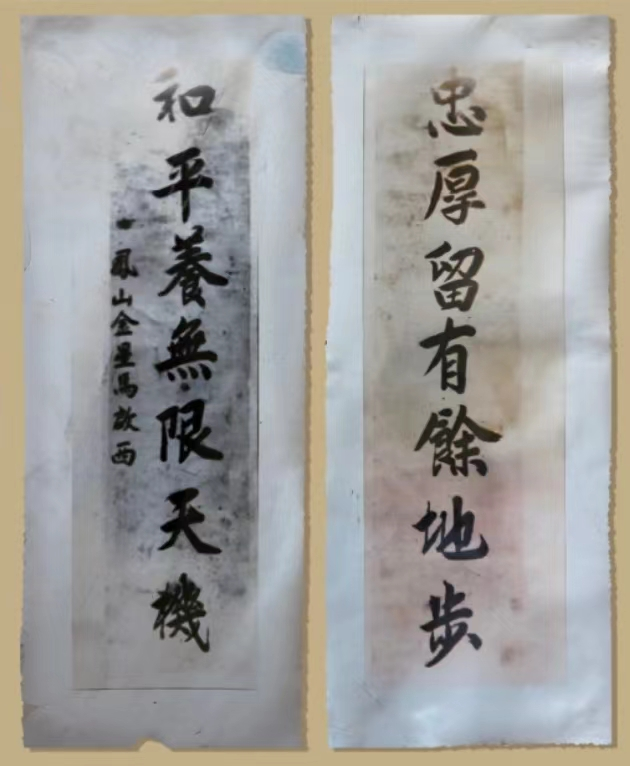 忠厚留有餘地步
和平養無限天機
鳳山金星馬
西